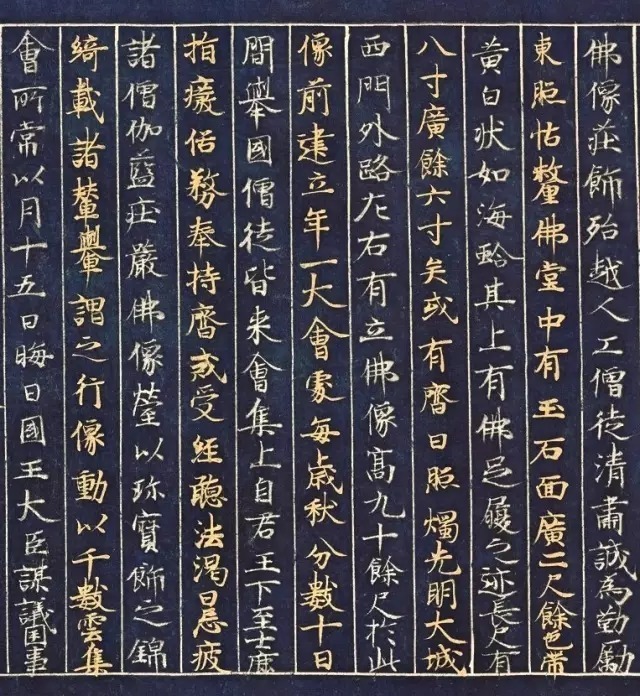 佛像莊飾殆越人工僧徒清肅誠為勤勵
東照怙釐佛堂中有玉石面廣二尺餘色帶
黃白狀如海蛤其上有佛足履之迹長尺有
八寸廣餘六寸矣或有齋日照燭光明大城
西門外路左右有立佛像高九十餘尺於此
像前建立年一大會處每歲秋分數十日
間舉國僧徒皆來會集上自君王下至士庶
指癈俗務奉持齋戒受經聽法渴日忘疲
諸僧伽藍莊嚴佛像瑩以珎寶飾之錦
綺載諸輦輿謂之行像動以千數雲集
會所常以月十五日晦日國王大臣謀議國事